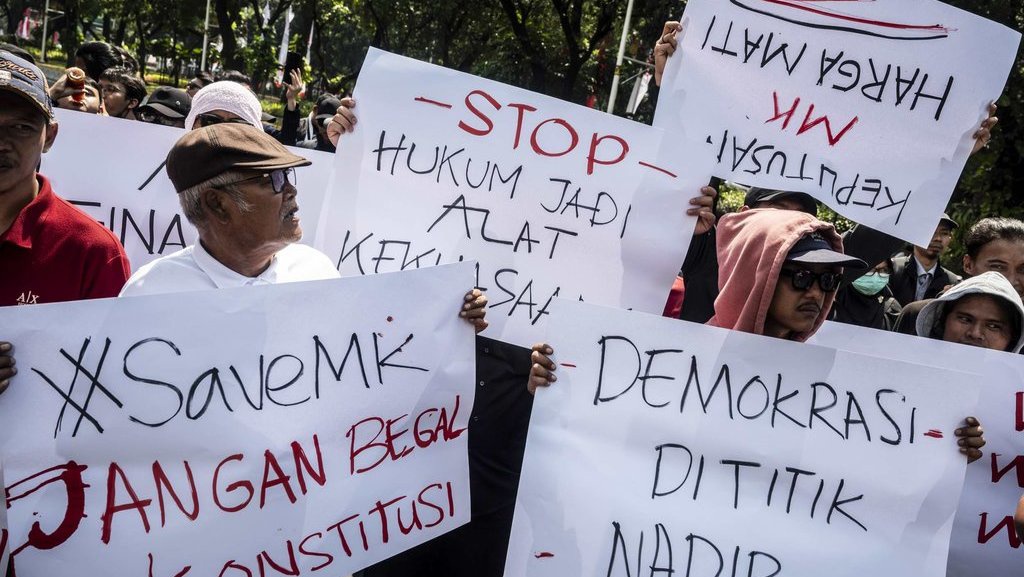 - STOP -
HUKUM JADI
ALAT
KEKUASAAN
KEPUTUSAN
MK
HARGA MATI
#SaveMK
JANGAN BEGAL
KONSTITUSI
- DEMOKRASI -
DI TITIK
- NADIR
A|X